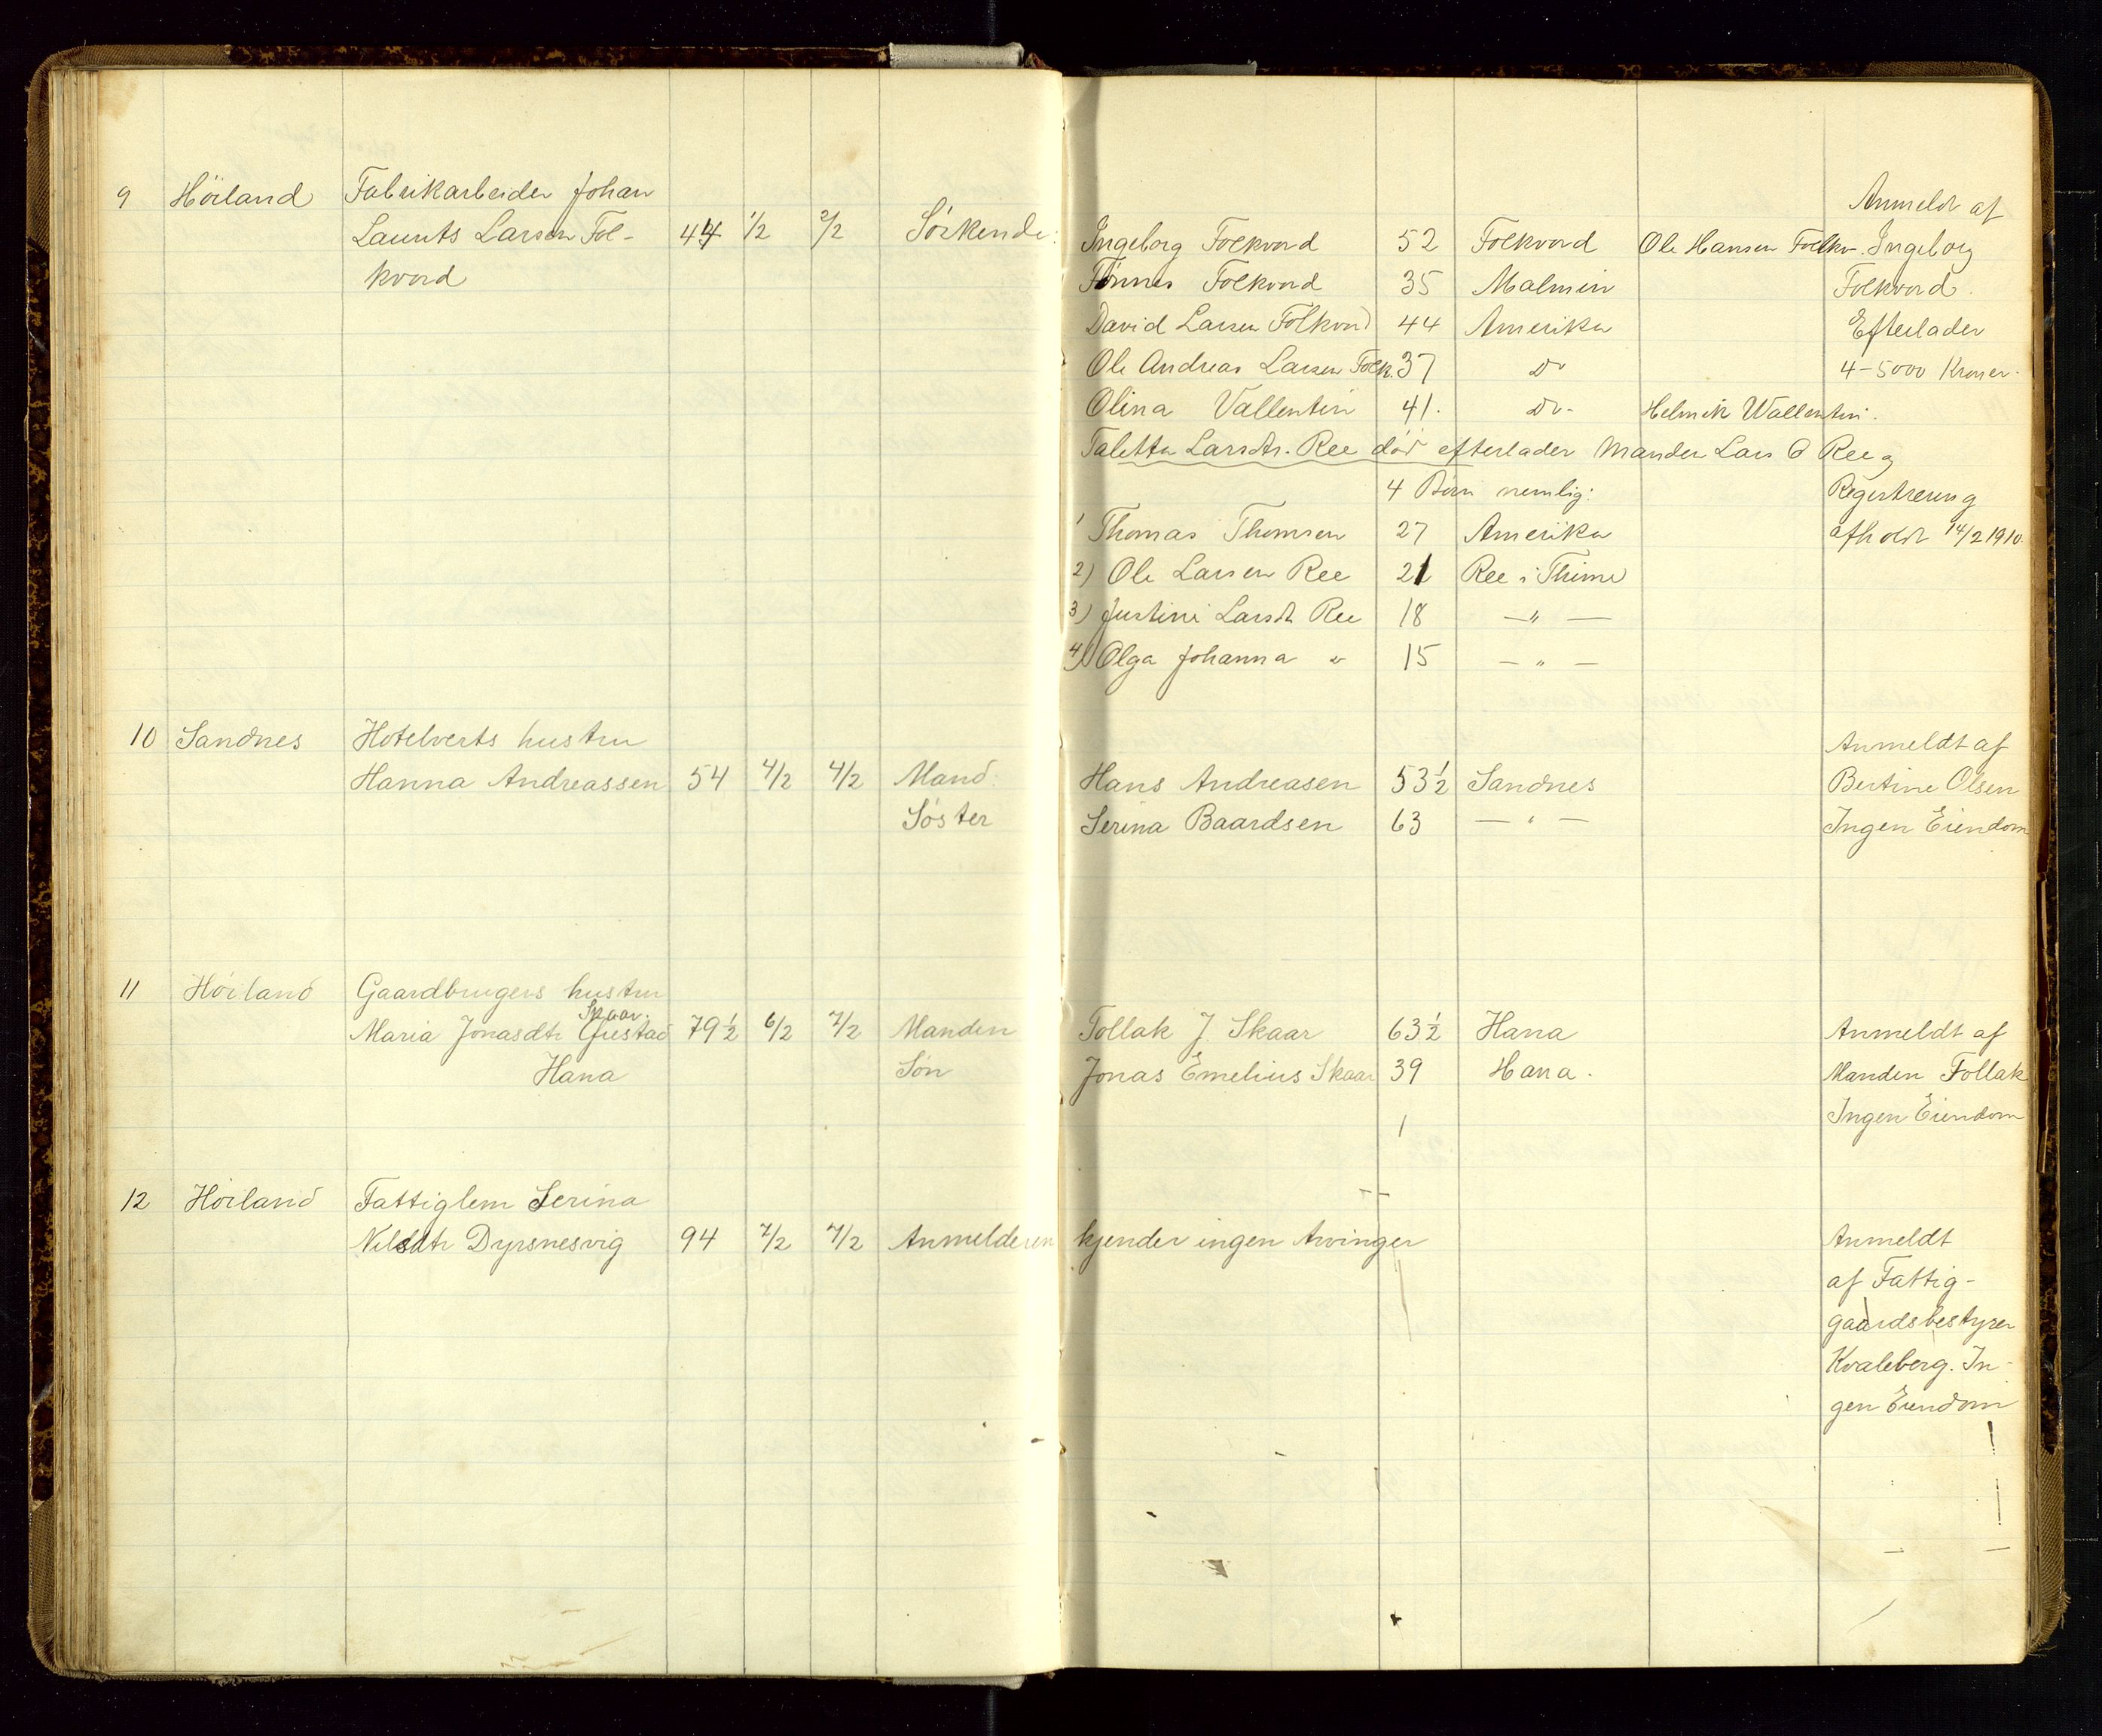 9 Höiland Fabrikarbeider Johan
Laurits Larsen Fol- 44 1/2 2/2 Söskende:
kvord
Anmeldt af
Ingeborg Folkvord 52 Folkvord Ole Hansen Folkv. Ingeborg
Tönnes Folkvord 35 Malmin Folkvord.
David Larsen Folkvord 44 Amerika Efterlader
Ole Andreas Larsen Folk. 37 Do 4-5000 Kroner.
Olina Vallentin 41. Do- Helmik Wallentin.
Taletta Larsdtr. Ree död efterlader Manden Lars O Ree og
4 Börn nemlig: Registrering
1 Thomas Thomsen 27 Amerika afholdt 14/2 1910
2) Ole Larsen Ree 21 Ree i Thime
3) Justine Larsdt Ree 18 — " —
4) Olga Johanna " 15 — " —
10 Sandnes Hotelverts hustru
Anmeldt af
Hanna Andreassen 54 4/2 4/2 Mand. Hans Andreasen 53½ Sandnes Bertine Olsen
Söster Serina Baardsen 63 — " — Ingen Eiendom
11 Höiland Gaardbrugers hustru
Skaar.
Maria Jonasdtr Gjestad 79½ 6/2 7/2 Manden Tollak J. Skaar 63½ Hana Anmeldt af
Hana Sön Jonas Emelius Skaar 39 Hana. Manden Tollak
Ingen Eiendom
12 Höiland Fattiglem Serina
Nilsdtr Dyrsnesvig 94 7/2 7/2 Anmelderen kjender ingen Arvinger Anmeldt
af Fattig-
gaardsbestyrer
Kvaleberg. In-
gen Eiendom